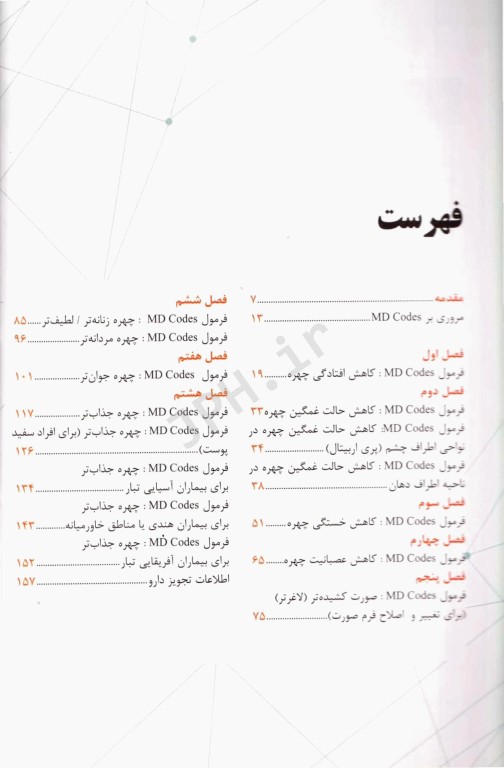 فهرست
مقدمه ........ ۷
مروری بر MD Codes ........ ۱۳
فصل اول
فرمول MD Codes : کاهش افتادگی چهره ........ ۱۹
فصل دوم
فرمول MD Codes : کاهش حالت غمگین چهره ۳۳
فرمول MD Codes: کاهش حالت غمگین چهره در
نواحی اطراف چشم (پری اربیتال) ........ ۳۴
فرمول MD Codes : کاهش حالت غمگین چهره در
ناحیه اطراف دهان ........ ۳۸
فصل سوم
فرمول MD Codes : کاهش خستگی چهره ........ ۵۱
فصل چهارم
فرمول MD Codes : کاهش عصبانیت چهره ........ ۶۵
فصل پنجم
فرمول MD Codes : صورت کشیده‌تر (لاغرتر)
(برای تغییر و اصلاح فرم صورت) ........ ۷۵
فصل ششم
فرمول MD Codes : چهره زنانه‌تر / لطیف‌تر ...... ۸۵
فرمول MD Codes : چهره مردانه‌تر ........ ۹۶
فصل هفتم
فرمول MD Codes : چهره جوان‌تر ........ ۱۰۱
فصل هشتم
فرمول MD Codes : چهره جذاب‌تر ........ ۱۱۷
فرمول MD Codes : چهره جذاب‌تر (برای افراد سفید
پوست) ........ ۱۲۶
فرمول MD Codes : چهره جذاب‌تر
برای بیماران آسیایی تبار ........ ۱۳۴
فرمول MD Codes : چهره جذاب‌تر
برای بیماران هندی یا مناطق خاورمیانه ........ ۱۴۳
فرمول MD Codes : چهره جذاب‌تر
برای بیماران آفریقایی تبار ........ ۱۵۲
اطلاعات تجویز دارو ........ ۱۵۷
JPH.ir